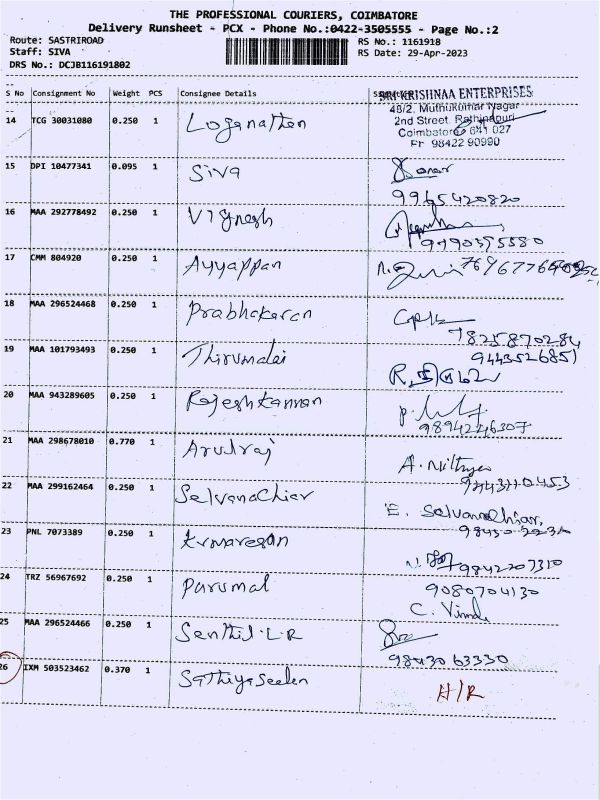 THE PROFESSIONAL COURIERS, COIMBATORE
Delivery Runsheet - PCX - Phone No.:0422-3505555 - Page No.:2
Route: SASTRIROAD
RS No.: 1161918
Staff: SIVA
RS Date: 29-Apr-2023
DRS No.: DCJB116191802
S No Consignment No Weight PCS Consignee Details
SRI KRISHNAA ENTERPRISES
48/2, Muthukumar Nagar
2nd Street, Rathinapuri
Coimbatore 641 027
98422 90990
14 TCG 30031080 0.250 1 Loganathan
15 DPI 10477341 0.095 1 Siva
9965420820
16 MAA 292778492 0.250 1 Vignesh
17 CMM 804920 0.250 1 Ayyappan
18 MAA 296524468 0.250 1 Prabhakaran
7825870284
19 MAA 101793493 0.250 1 Thirumalai
9443526851
20 MAA 943289605 0.250 1 Rajeshkannan
9894246307
21 MAA 298678010 0.770 1 Arulraj
A. Nithya
22 MAA 299162464 0.250 1 SelvanaChiar
E. Selvanachiar,
23 PNL 7073389 0.250 1 Kumaresan
9842207310
24 TRZ 56967692 0.250 1 Parumal
9080704130
C. Vimla
25 MAA 296524466 0.250 1 Senthil.L.R
9843063330
26 IXM 503523462 0.370 1 Sathiyaseelan
H/R